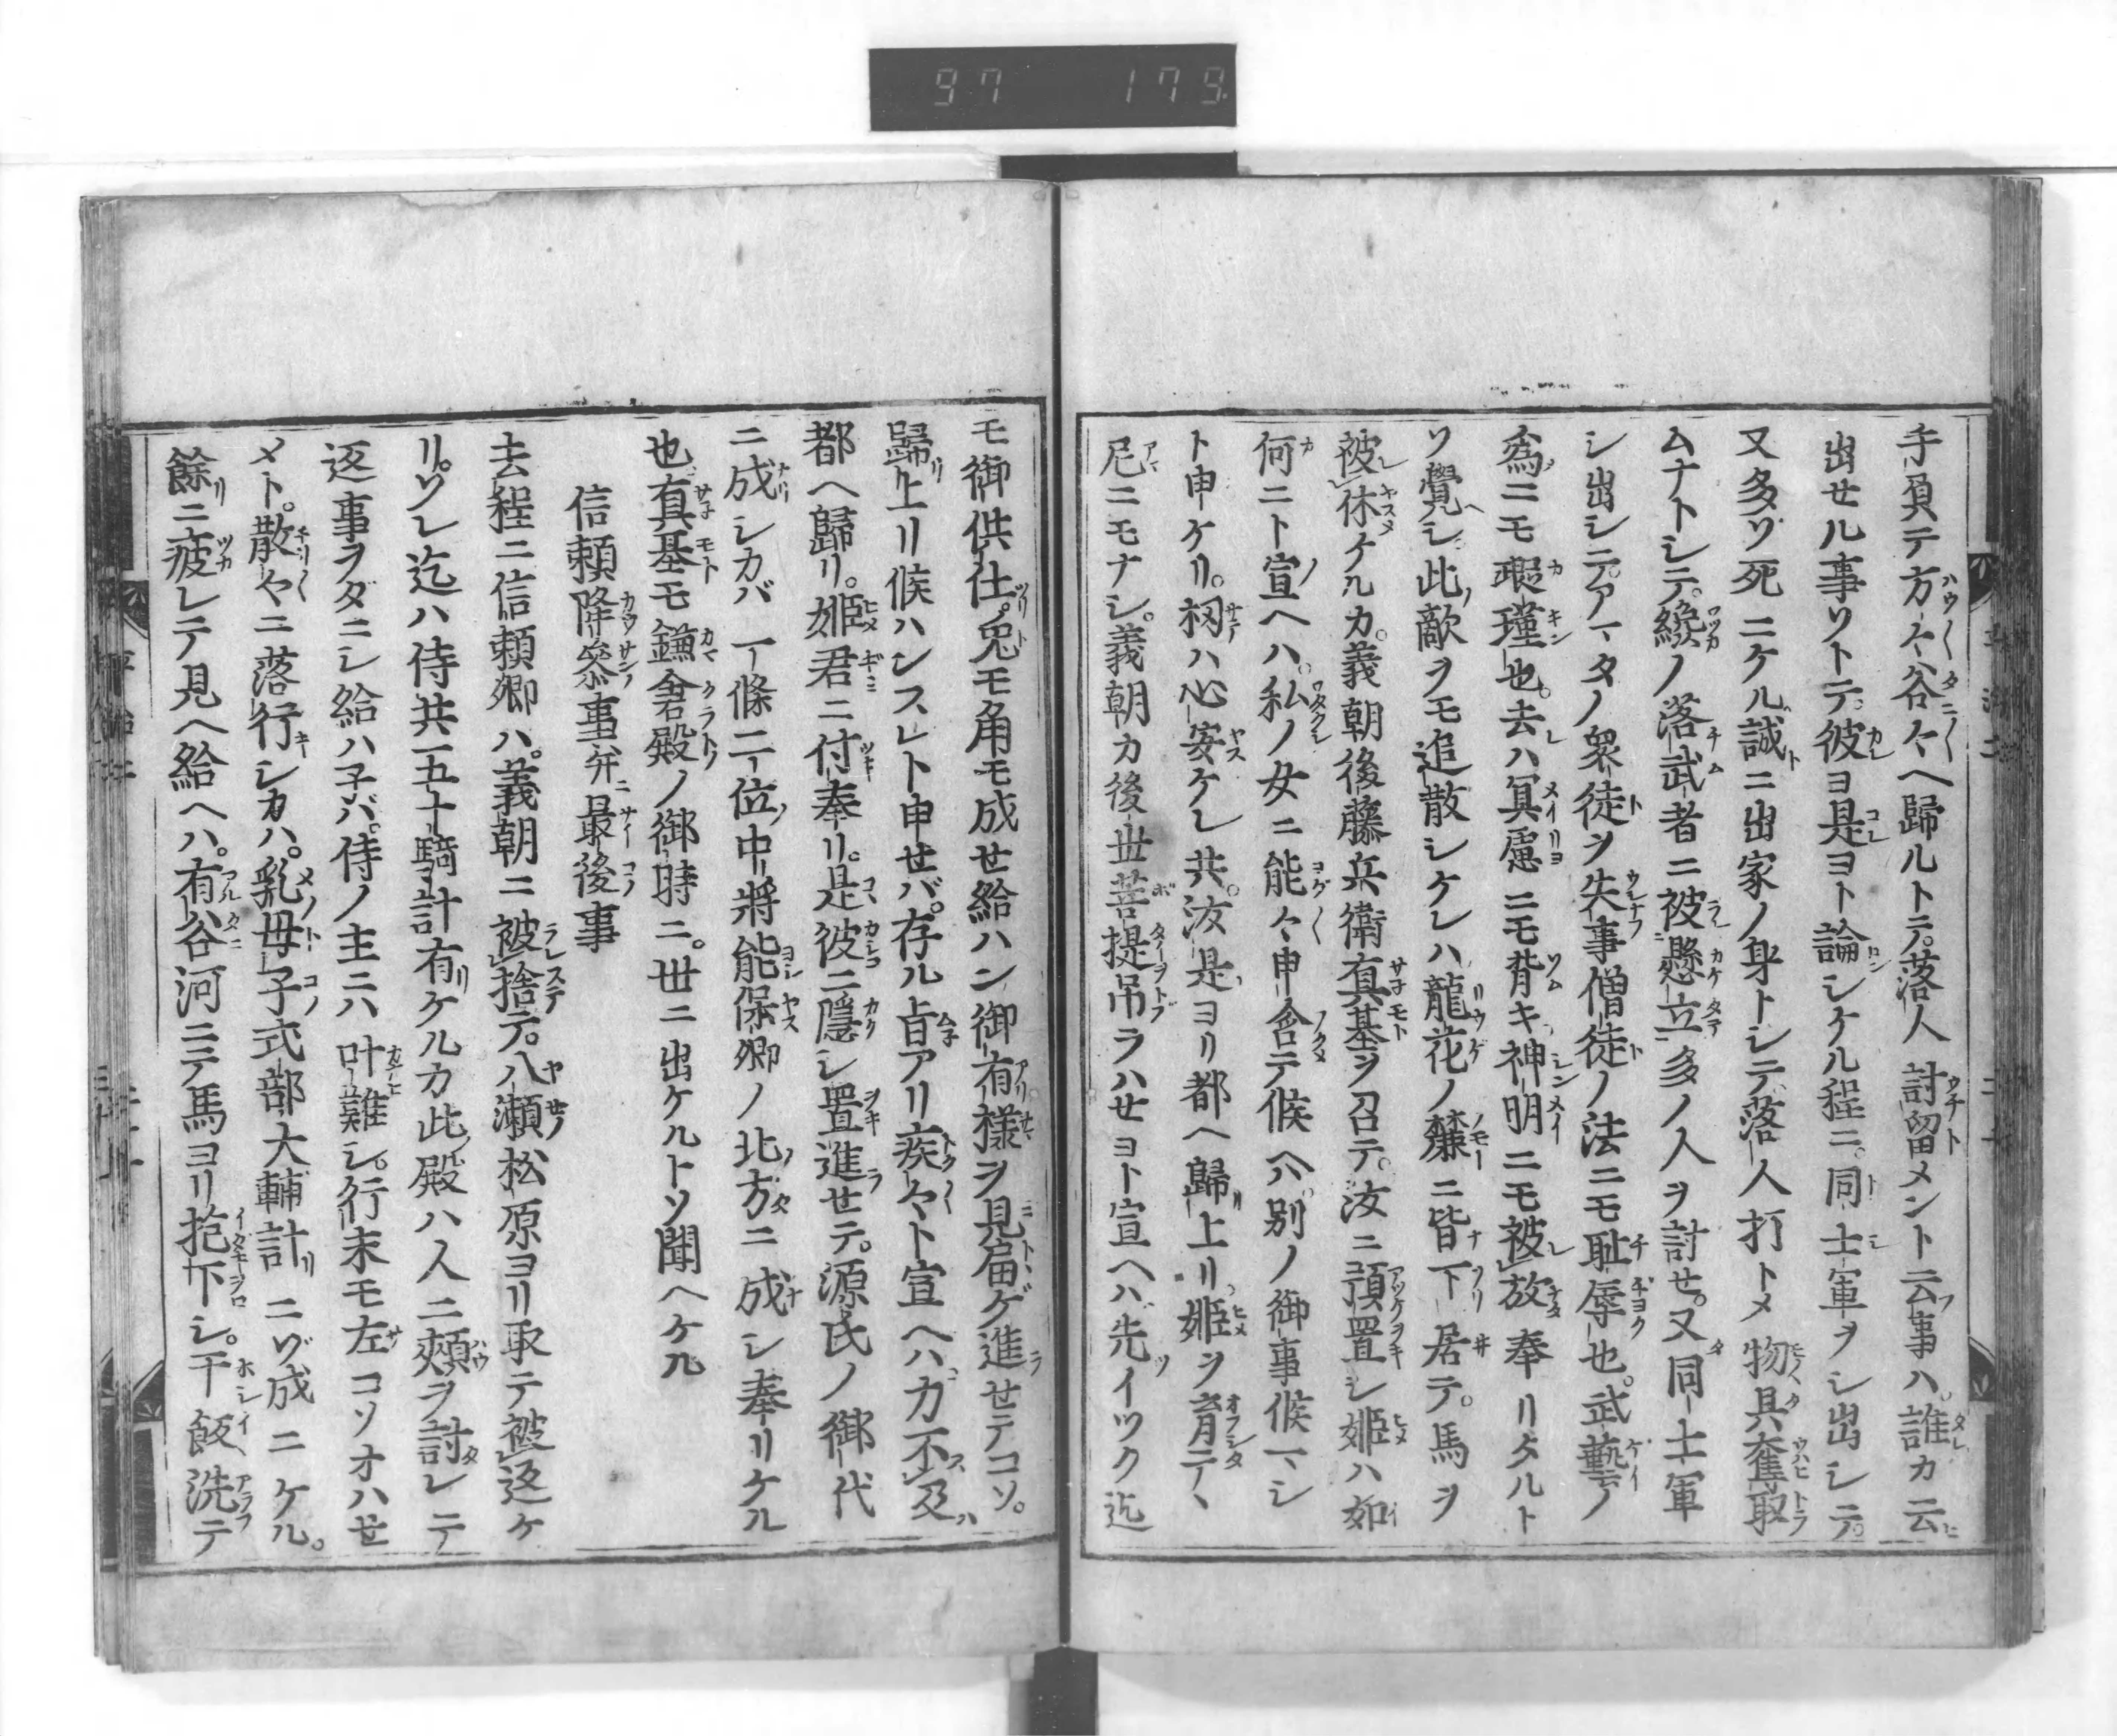 97 179
手負テ方々谷々ヘ歸ルトテ。落人討留メント云事ハ。誰カ云
出セル事ソトテ。彼ヨ是ヨト論シケル程ニ。同士軍ヲシ出シテ。
又多ソ死ニケル。誠ニ出家ノ身トシテ落人打トメ物具奪取
ムナトシテ。纔ノ落武者ニ被懸立多ノ人ヲ討せ。又同士軍
シ出シテアマタノ衆徒ヲ失事僧徒ノ法ニモ耻辱也。武藝ノ
爲ニモ瑕瑾也。去ハ冥慮ニモ背キ神明ニモ被放奉リタルト
ソ覺シ。此敵ヲモ追散シケレハ龍花ノ麓ニ皆下居テ。馬ヲ
被休ケルカ。義朝後藤兵衛真基ヲ召テ。汝ニ預置シ姫ハ如
何ニト宣ヘハ。私ノ女ニ能々申含テ候ヘハ。別ノ御事候マシ
ト申ケリ。扨ハ心安ケレ共。汝是ヨリ都ヘ歸上リ。姫ヲ育テヽ
尼ニモナシ。義朝カ後世菩提吊ラハせヨト宣ヘハ先イツク迄
モ御供仕。兎モ角モ成せ給ハン御有樣ヲ見屆ゲ進せテコソ。
歸上リ候ハンスレト申せバ。存ル旨アリ疾々ト宣ヘハ力不及
都ヘ歸リ。姫君ニ付奉リ。是彼ニ隱シ置進せテ。源氏ノ御代
ニ成シカバ一條二位中將能保卿ノ北方ニ成シ奉リケル
也。真基モ鎌倉殿ノ御時ニ。世ニ出ケルトソ聞ヘケル
信頼降參事并最後事
去程ニ信頼卿ハ。義朝ニ被捨テ。八瀬松原ヨリ取テ被返ケ
リ。ソレ迄ハ侍共五十騎計有ケルカ此殿ハ人ニ頬ヲ討レテ
返事ヲダニシ給ハ子バ。侍ノ主ニハ叶難シ。行末モ左コソオハせ
メト。散々ニ落行シカハ。乳母子式部大輔計ニソ成ニケル。
餘ニ疲レテ見ヘ給ヘハ。有谷河ニテ馬ヨリ抱下シ。干飯洗テ